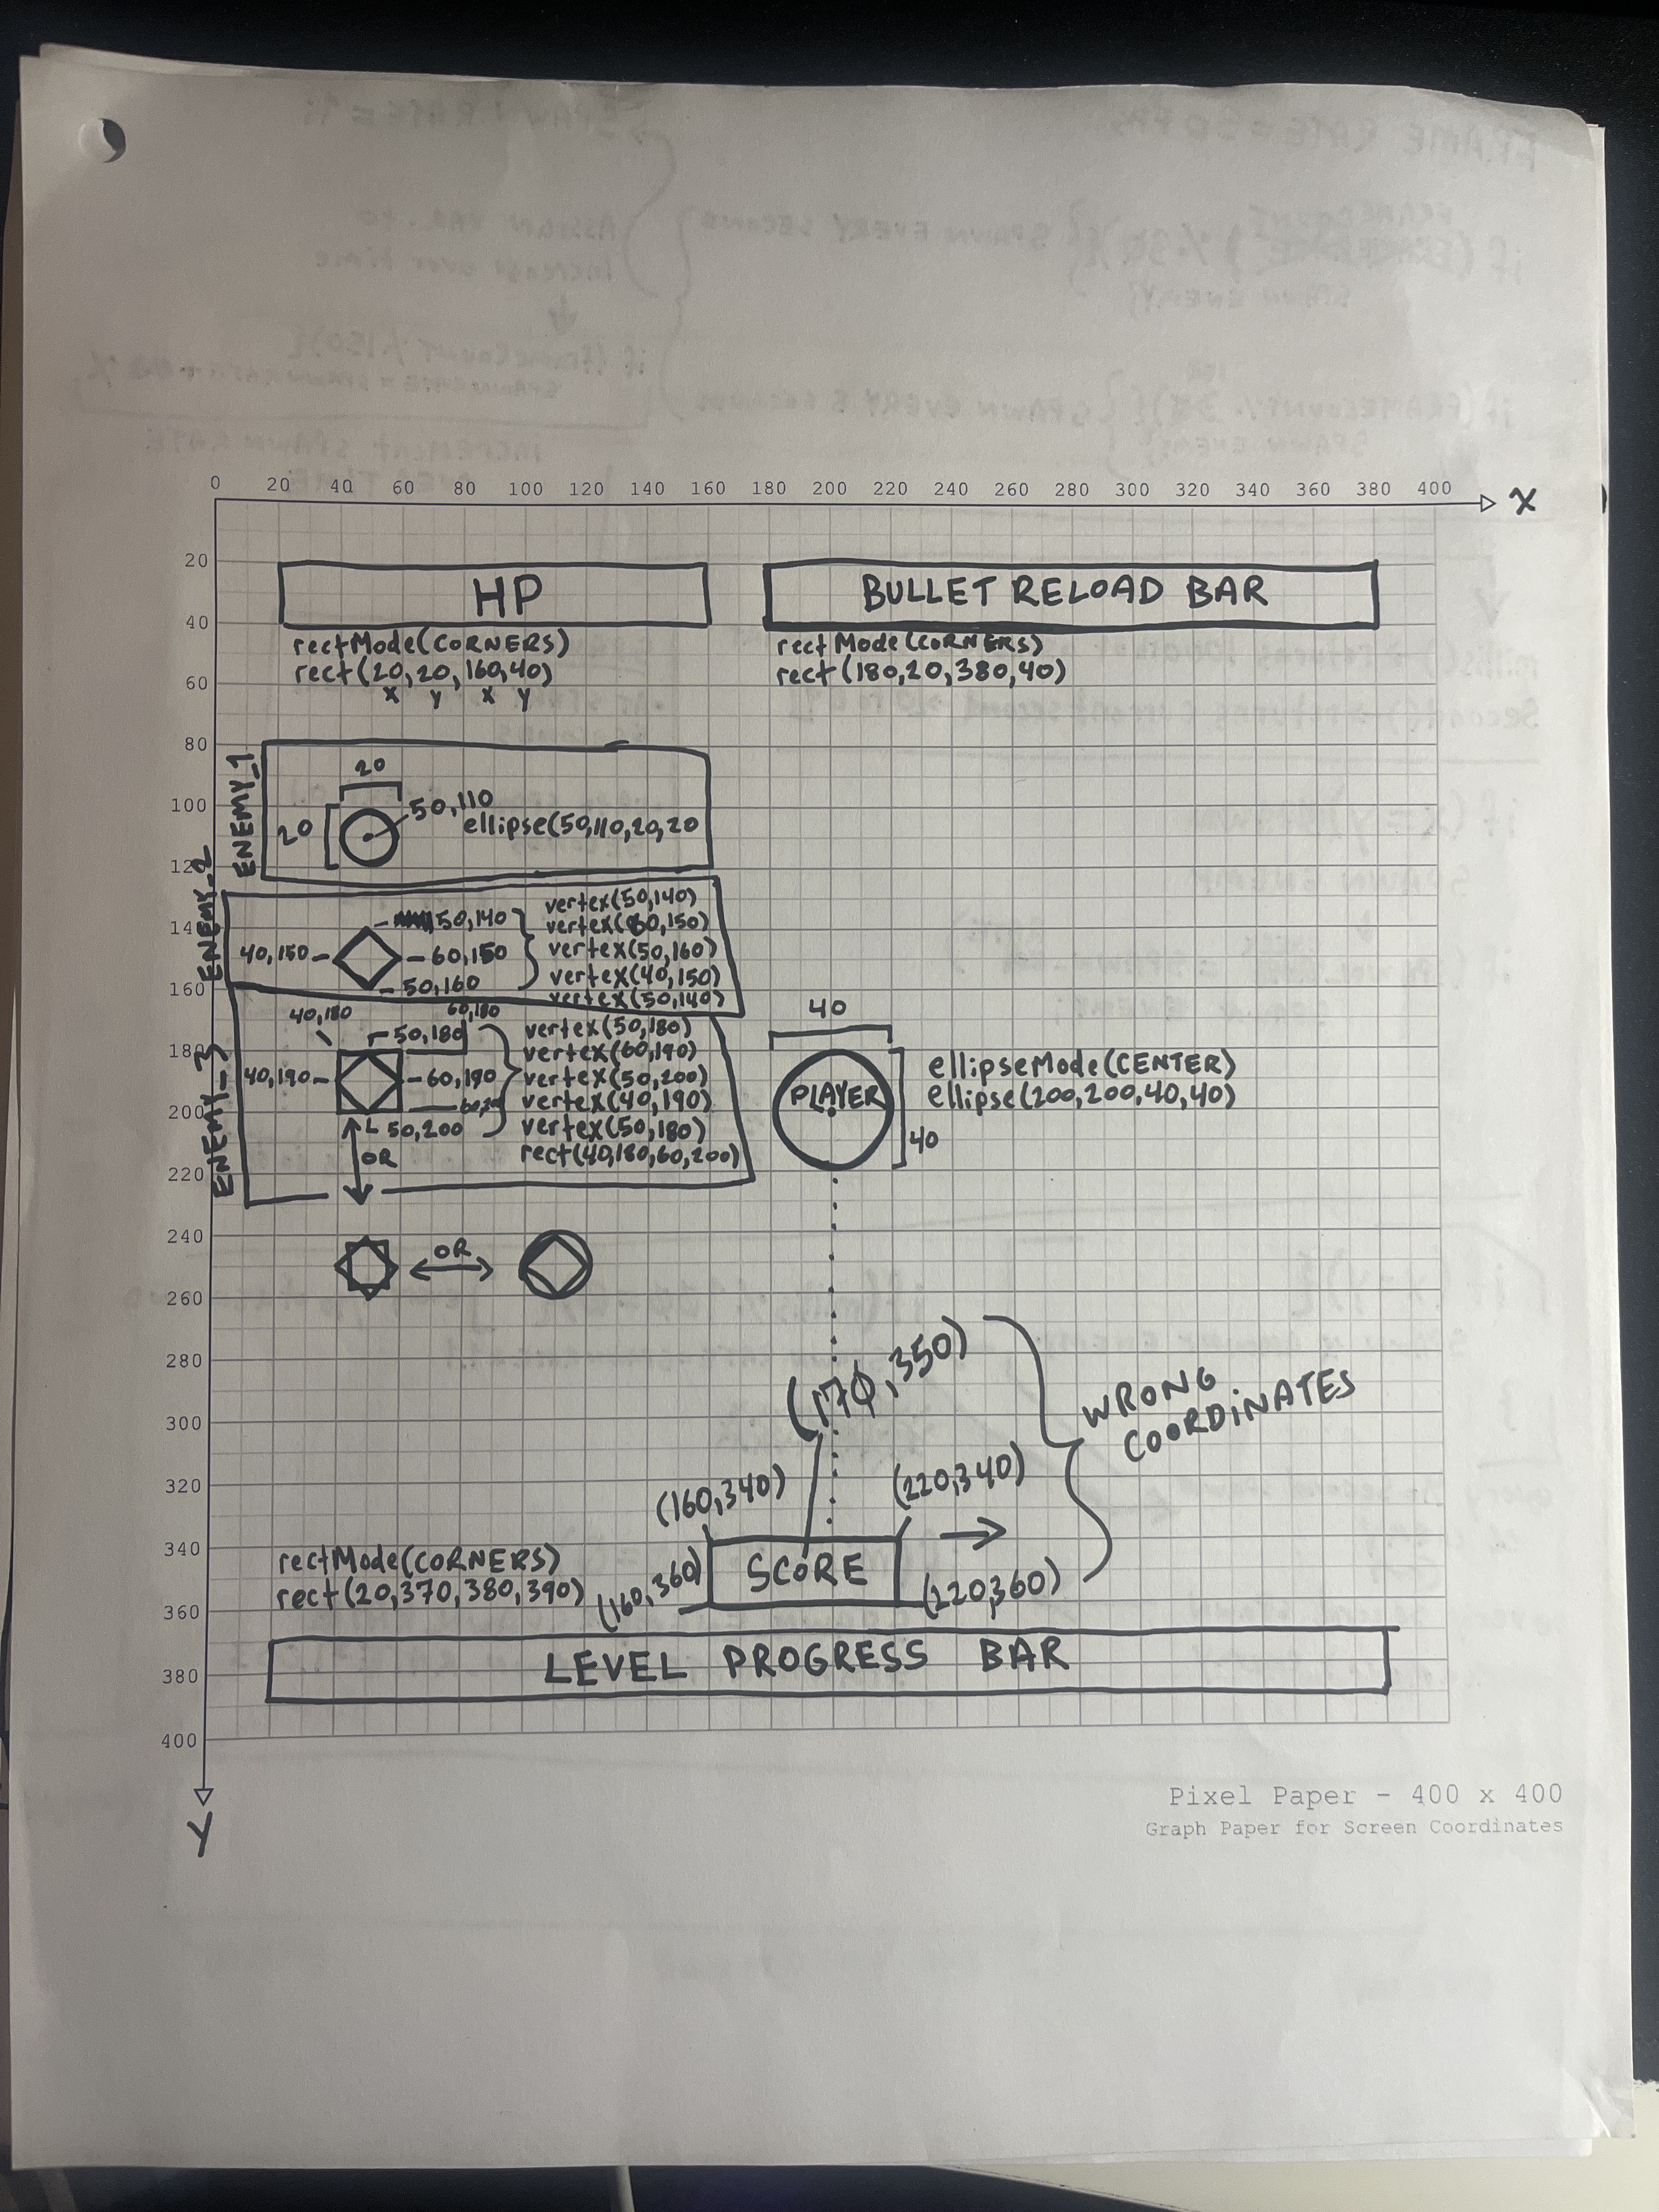 0 20 40 60 80 100 120 140 160 180 200 220 240 260 280 300 320 340 360 380 400
X
20
40
60
80
100
12
14
160
180
200
220
240
260
280
300
320
340
360
380
400
Y
HP
rectMode(CORNERS)
rect(20,20,160,40)
x y x y
BULLET RELOAD BAR
rectMode(CORNERS)
rect(180,20,380,40)
ENEMY_1
20
20
50,110
ellipse(50,110,20,20
ENEMY_2
50,140
40,150
60,150
50,160
vertex(50,140)
vertex(60,150)
vertex(50,160)
vertex(40,150)
vertex(50,140)
ENEMY_3
40,180
60,180
50,180
40,190
60,190
50,200
vertex(50,180)
vertex(60,190)
vertex(50,200)
vertex(40,190)
vertex(50,180)
rect(40,180,60,200)
OR
OR
40
PLAYER
40
ellipseMode(CENTER)
ellipse(200,200,40,40)
(170,350)
WRONG
COORDINATES
(160,340)
(220,340)
SCORE
(160,360)
(220,360)
rectMode(CORNERS)
rect(20,370,380,390)
LEVEL PROGRESS BAR
Pixel Paper - 400 x 400
Graph Paper for Screen Coordinates